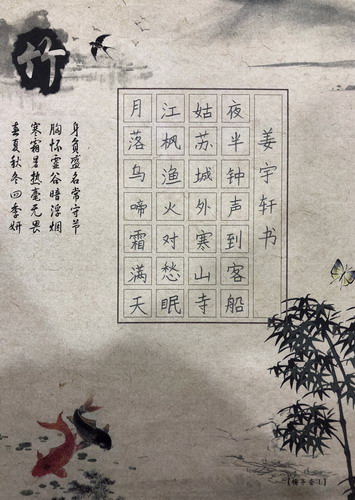 竹
身负盛名常守节
胸怀虚谷暗浮烟
寒霜暑热毫无畏
春夏秋冬四季妍
月落乌啼霜满天
江枫渔火对愁眠
姑苏城外寒山寺
夜半钟声到客船
姜宇轩书